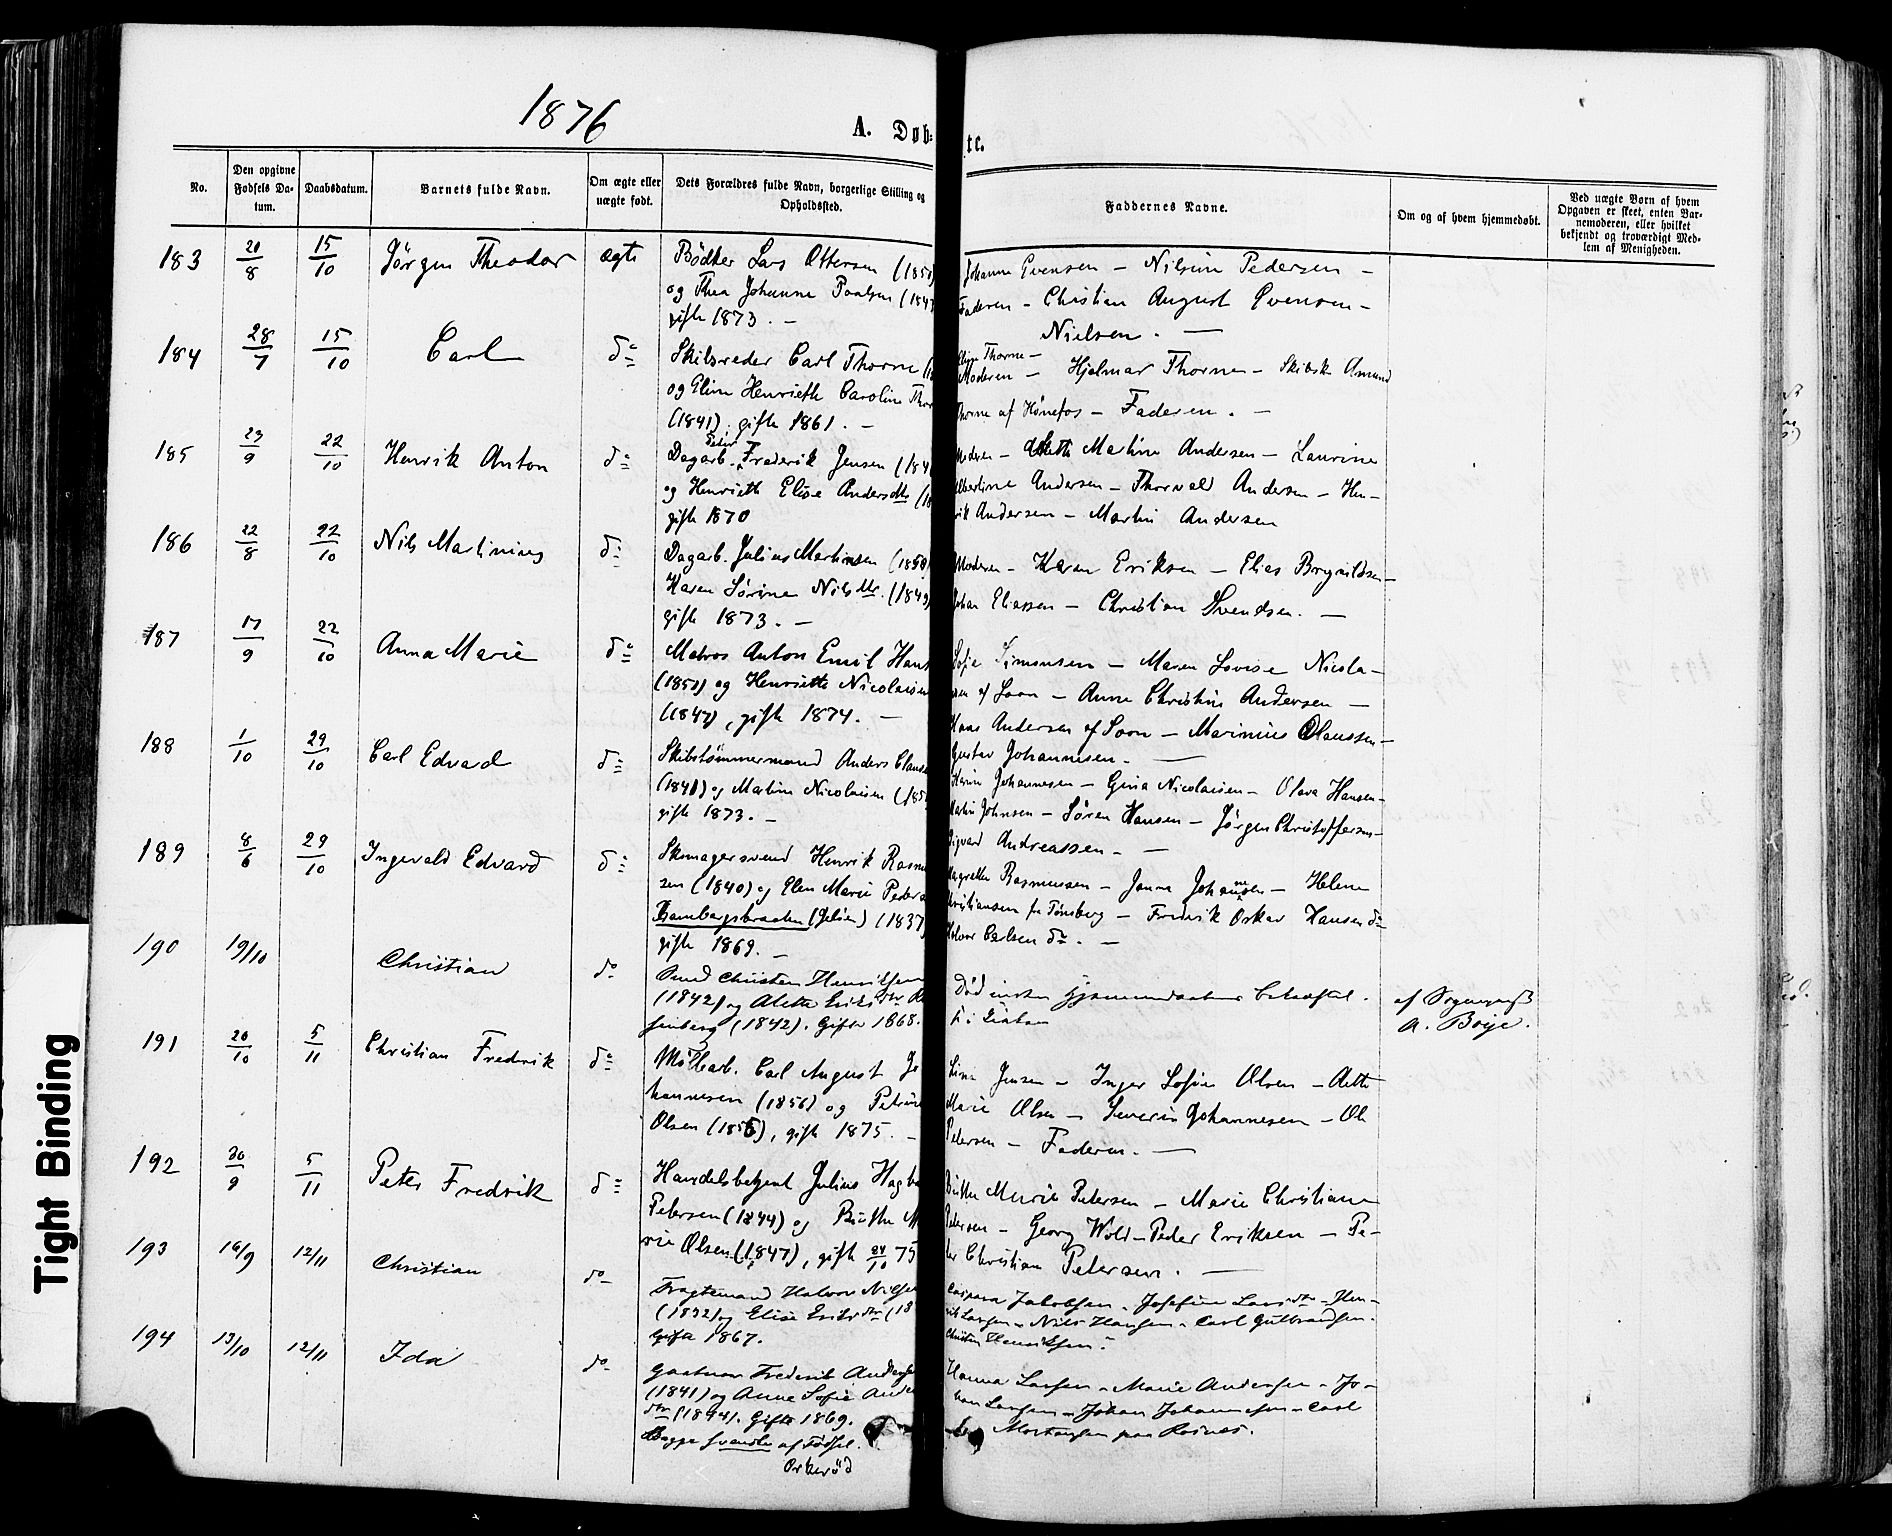 1876
A. Døb: tc.
No.
Den opgivne Fødsels Datum.
Daabsdatum.
Barnets fulde Navn.
Om ægte eller uægte født.
Dets Forældres fulde Navn, borgerlige Stilling og Opholdssted.
Faddernes Navne.
Om og af hvem hjemmedøbt.
Ved uægte Børn af hvem
Opgaven er skeet, enten Bar-
nemoderen, eller hvilket
bekjendt og troværdigt Med-
lem af Menigheden.
183 20/8 15/10 Jörgen Theodor ægte Bödker Lars Ottersen
og Thea Johanne Paalsen
gifte 1873. —
Johanne Evensen — Nilsine Pedersen —
Faderen — Christian August Evensen —
Nielsen. —
184 28/7 15/10 Carl do Skibsreder Carl Thorne
og Eline Henriette Caroline
(1841), gifte 1861. —
Thorne —
Moderen — Hjalmar Thorne — Skibsk. Amund
Thorne af Hönefos — Faderen. —
185 23/9 22/10 Henrik Anton do Dagarb. Peter Frederik Jensen
og Henriette Elise Andersdtr
gifte 1870
Moderen — Martine Andersen — Laurine
Albertine Andersen — Thorvald Andersen — Hen-
rik Andersen — Martin Andersen
186 22/8 22/10 Nils Martinius do Dagarb. Julius Martinsen (1850)
Karen Sørine Nilsdtr. (1849)
gifte 1873. —
Moderen — Karen Eriksen — Elias Brynildsen —
Johan Eliassen — Christian Svendsen. —
187 17/9 22/10 Anna Marie do Matros Anton Emil
(1850) og Henriette Nicolaisen
(1847), gifte 1874. —
Sofie Simonsen — Maren Lovise Nicola-
sen af Soon — Anne Christine Andersen —
Hans Andersen af Soon — Marinius Olaussen —
Gustav Johannesen. —
188 1/10 29/10 Carl Edvard do Skibstömmermand Anders
(1848) og Martine Nicolaisen
gifte 1873. —
Karine Johannesen — Gina Nicolaisen — Olava Hansen —
Martin Johnsen — Sören Hansen — Jörgen Christoffersen —
Sigvard Andreassen. —
189 8/6 29/10 Ingevald Edvard do Skomagersvend Henrik
sen (1840) og Elen Marie
(Jelöen) (1837)
gifte 1869. —
Rasmussen — Janna Johannesen — Helene
Christiansen fra Tönsberg — Fredrik Oskar Hansen do
Halvor Carlsen do. —
190 19/10 Christian do Christen Henriksen
(1842) og Alette Eriksdtr
(1842). Gifte 1868.
Död inden Hjemmedaaben bekræftet.
af Sogneprest
A. Boye.
191 20/10 5/11 Christian Fredrik do Möllearb. Carl August Jo
hannesen (1856) og Petrine
Olsen (1856), gifte 1875. —
Lina Jensen — Inger Sofie Olsen —
Marie Olsen — Severin Johannesen — Ole
Petersen — Faderen. —
192 30/9 5/11 Peter Fredrik do Handelsbetjent Julius
Petersen (1844) og Birthe M
rie Olsen (1847), gifte 24/10 75
Birthe Marie Petersen — Marie Christiane
Petersen — Georg Wold — Peder Eriksen — Pe-
ter Christian Petersen. —
193 16/9 12/11 Christian do Fragtemand Halvor
(1832) og Elise Eriksdtr
Gifte 1867.
Caspara Jakobsen — Josefine Larsdtr — Hen-
rik Larsen — Nils Hansen — Carl Gulbrandsen —
Christen Henriksen.
194 13/10 12/11 Ida do Gaardmand Frederik
(1841) og Anne Sofie
dtr (1844). Gifte 1869.
Begge svenske af Födsel.
Orkeröd
Hanna Larsen — Marie Andersen — Jo-
han Larsen — Johan Johannesen — Carl
Mortensen paa Rosnes.
Tight Binding